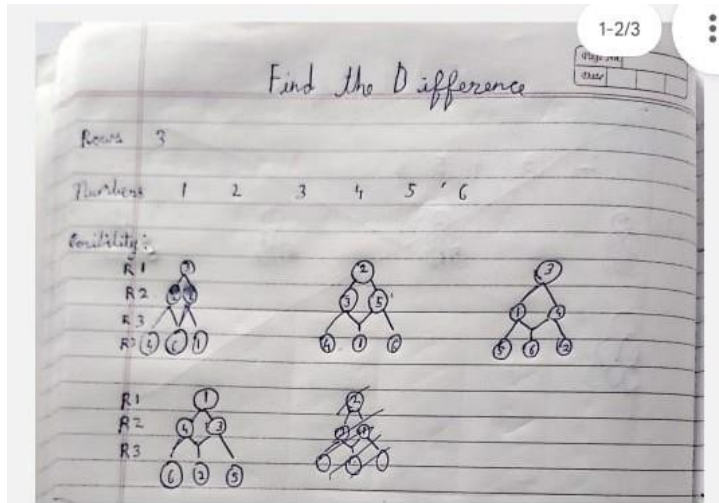 1-2/3
Page No.
Date
Find the Difference
Rows 3
Numbers 1 2 3 4 5 6
Posibility :
R 1 3 2 3
R 2 3 5 1 4
R 3
4 6 1 4 1 6 5 6 2
R 1 1
R 2 4 3
R 3
6 2 5